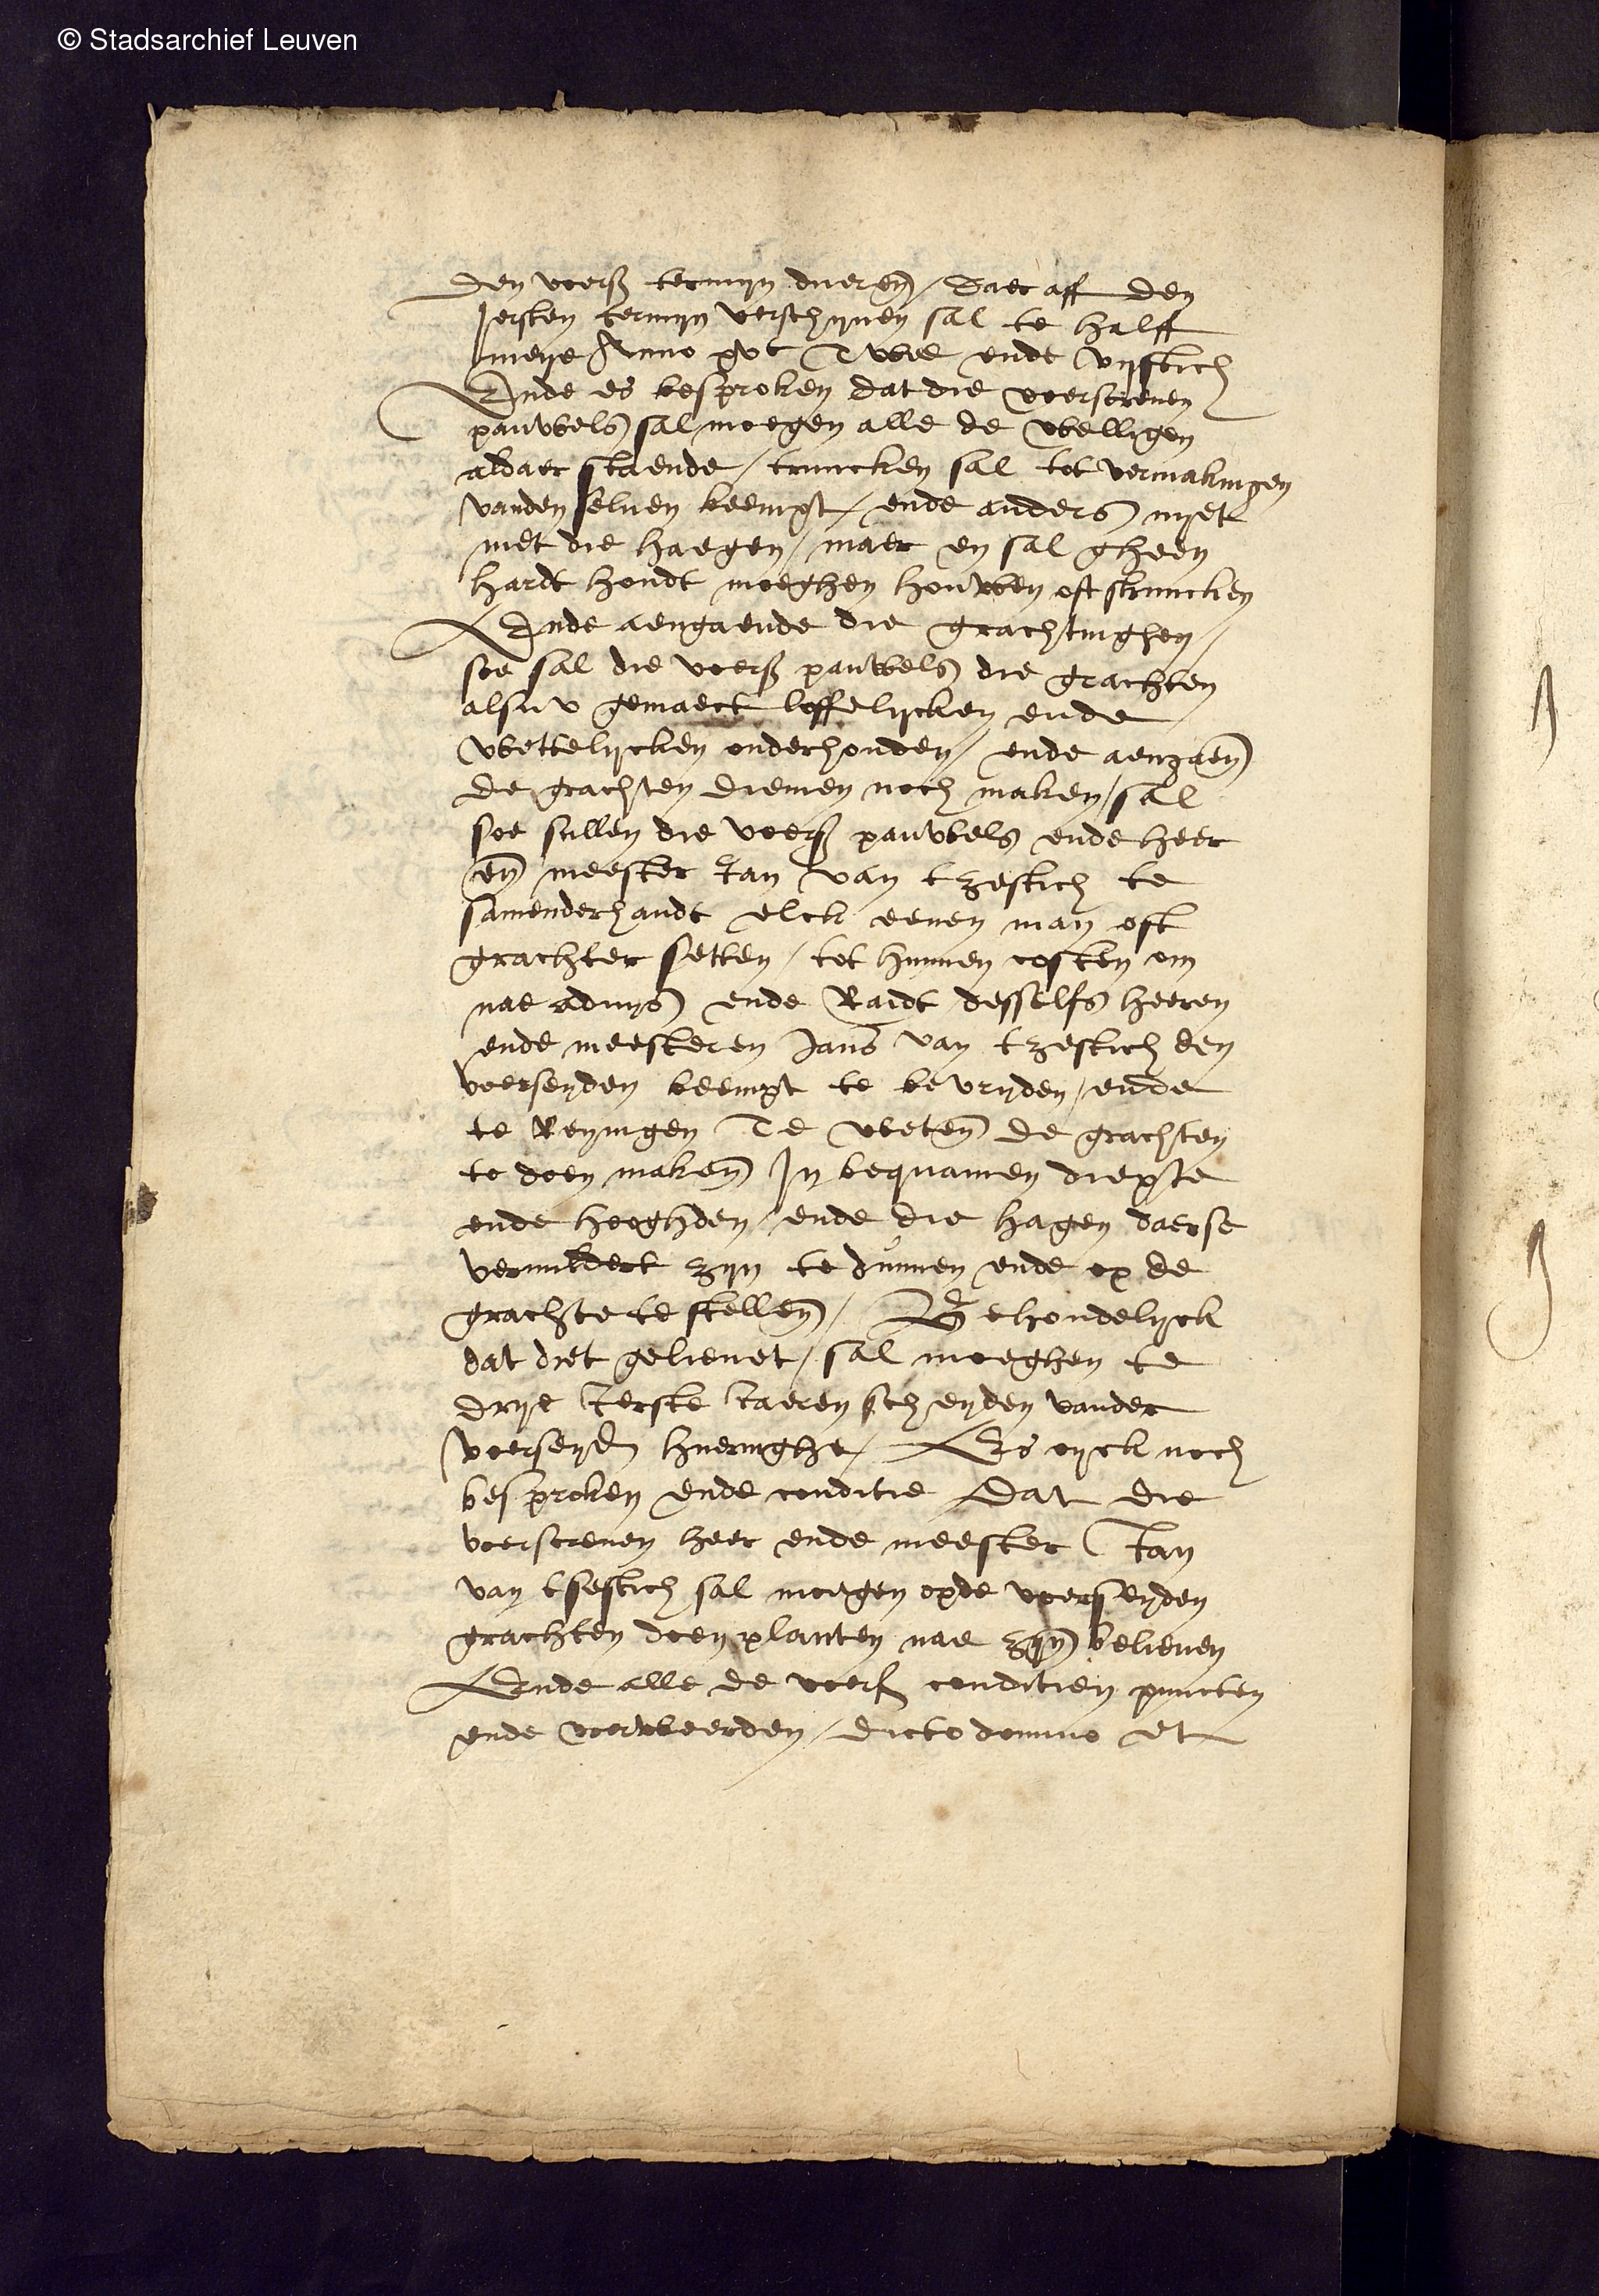 © Stadsarchief Leuven
den voers termyn duerende / daer aff den
jersten termyn verschynen sal te halff
meye Anno xvc Twee ende vyftich
Ende es besproken dat die voerscreven
pauwels sal moegen alle de welligen
aldaer staende / truncken sal tot vermakingen
vanden selven beempt / ende anders nyet
met die haegen / maer en sal gheen
hardt houdt moeghen houwen oft struncken
Ende aengaende die grachtinghen /
soe sal die voers pauwels die grachten
alsnv gemaect loffelycken ende
wettelycken onderhouden / ende aengaen
de grachten diemen noch maken / sal
soe sullen die voers pauwels ende heer
en meester Jan van tzestich te
samenderhandt elck eenen man oft
grachter setten / tot hunnen costen om
nae advys ende Raidt desselfs heeren
ende meesteren Jans van tzestich den
voerseyden beempt te bevryden / ende
te Reyningen Te weten de grachten
te doen maken In bequamen diepte
ende hooghden / ende die hagen daerse
verwildert zyn te dunnen ende op de
grachte te stellen / Behoudelyck
dat diet gelievet / sal moeghen te
drye Jerste Jaeren scheyden vander
voerseyden hueringhe / Es oyck noch
besproken ende conditie dat die
voerscreven heer ende meester Jan
van tsestich sal moegen opde voerseyden
grachten doen planten nae zyn believen
Ende alle de voers conditien puncten
ende voerweerden / dicto domino et